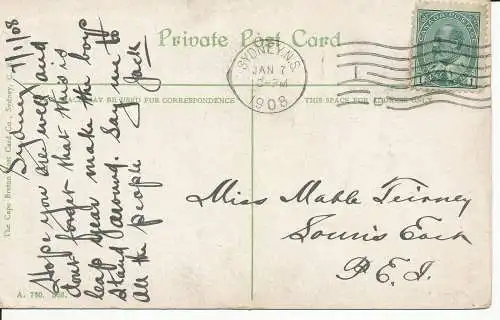 Private Post Card
SYDNEY, N.S.
JAN 7
1908
MAY BE USED FOR CORRESPONDENCE
THIS SPACE FOR ADDRESS ONLY
Sydney 7/1/08
Hope you are well and
dont forget that this is
leap year make the boys
stand around. Say me to
all the people
Jack
Miss Mable Tierney
Souris East
P.E.I.
The Cape Breton Post Card Co., Sydney, C.
A. 750.